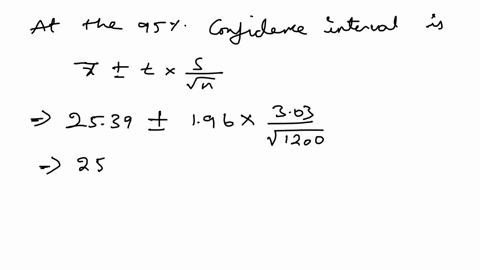 At the 95%. Confidence interval is
x̄ ± t × S/√n
=> 25.39 ± 1.96 × 3.03/√1200
=> 25